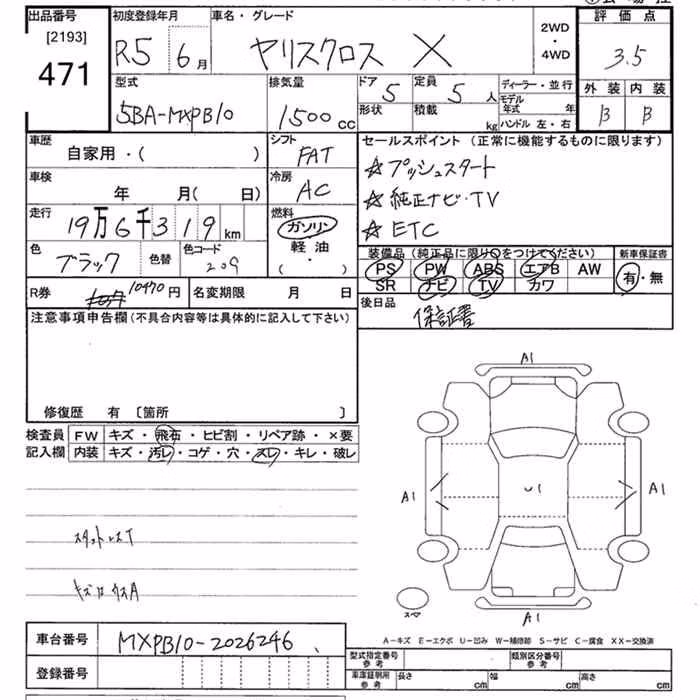 出品番号 初度登録年月 車名・グレード 2WD ・ 4WD 評価点
[2193]
471 R5 6月 ヤリスクロス X 3.5
型式 排気量 ドア 5 定員 5人 ディーラー・並行 外装 内装
5BA-MXPB10 1500cc 形状 積載 kg モデル年式 年 B B
ハンドル 左・右
車歴 シフト セールスポイント (正常に機能するものに限ります)
自家用・( ) FAT ☆プッシュスタート
車検 冷房 ☆純正ナビ・TV
年 月( 日) AC ☆ETC
走行 燃料 装備品 (純正品に限り○をつけてください) 新車保証書
19万6千319km ガソリン PS PW ABS エアB AW 有・無
色 ブラック 色替 色コード 209 軽油 ・( ) SR ナビ TV カワ
R券 10470円 名変期限 月 日 後日品
保証書
注意事項申告欄(不具合内容等は具体的に記入して下さい)
修復歴 有 〔箇所 〕
検査員 FW キズ・飛石・ヒビ割・リペア跡・×要
記入欄 内装 キズ・汚レ・コゲ・穴・スレ・キレ・破レ
A1
A1 U1 A1
スタットレスT
A1
スペア
A-キズ E-エクボ U-凹み W-補修跡 S-サビ C-腐食 XX-交換済
車台番号 MXPB10-2026246
型式指定番号 参考 類別区分番号 参考
登録番号 車庫証明用 参考 長さ cm 幅 cm 高さ cm